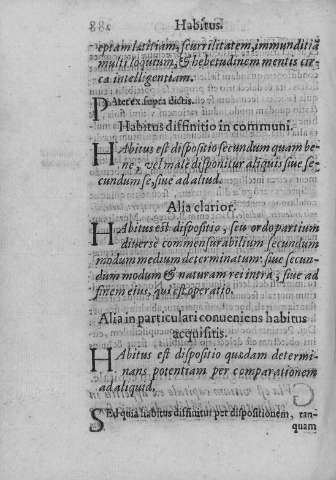 88♂
Habitus.
eptam lætitiam, scurrilitatem, immunditiã
multiloquium, & hebetudinem mentis cir-
ca intelligentiam.
PAtet ex supra dictis.
Habitus diffinitio in communi.
HAbitus est dispositio secundum quam be-
ne, vel male disponitur aliquis siue se-
cundum se, siue ad aliud.
Alia clarior.
HAbitus est dispositio, seu ordo partium
diuersè commensurabilium secundum
modum medium determinatum: siue secun-
dum modum & naturam rei intrà, siue ad
finem eius, qui est operatio.
Alia in particulari conueniens habitus
acquisitis.
HAbitus est dispositio quædam determi-
nans potentiam per comparationem
ad aliquid.
SEd quia habitus diffinitur per dispositionem, tan-
quam